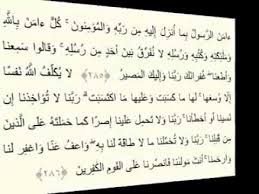 ءَامَنَ الرَّسُولُ بِمَا أُنْزِلَ إِلَيْهِ مِن رَّبِّهِ وَالْمُؤْمِنُونَ ۚ كُلٌّ ءَامَنَ بِاللَّهِ
وَمَلَٰئِكَتِهِ وَكُتُبِهِ وَرُسُلِهِ لَا نُفَرِّقُ بَيْنَ أَحَدٍ مِّن رُّسُلِهِ ۚ وَقَالُوا سَمِعْنَا
وَأَطَعْنَا ۖ غُفْرَانَكَ رَبَّنَا وَإِلَيْكَ الْمَصِيرُ ﴿٢٨٥﴾ لَا يُكَلِّفُ اللَّهُ نَفْسًا
إِلَّا وُسْعَهَا ۚ لَهَا مَا كَسَبَتْ وَعَلَيْهَا مَا اكْتَسَبَتْ ۗ رَبَّنَا لَا تُؤَاخِذْنَا إِن
نَّسِينَا أَوْ أَخْطَأْنَا ۚ رَبَّنَا وَلَا تَحْمِلْ عَلَيْنَا إِصْرًا كَمَا حَمَلْتَهُ عَلَى الَّذِينَ
مِن قَبْلِنَا ۚ رَبَّنَا وَلَا تُحَمِّلْنَا مَا لَا طَاقَةَ لَنَا بِهِ ۖ وَاعْفُ عَنَّا وَاغْفِرْ لَنَا
وَارْحَمْنَا ۚ أَنتَ مَوْلَىٰنَا فَانصُرْنَا عَلَى الْقَوْمِ الْكَٰفِرِينَ ﴿٢٨٦﴾